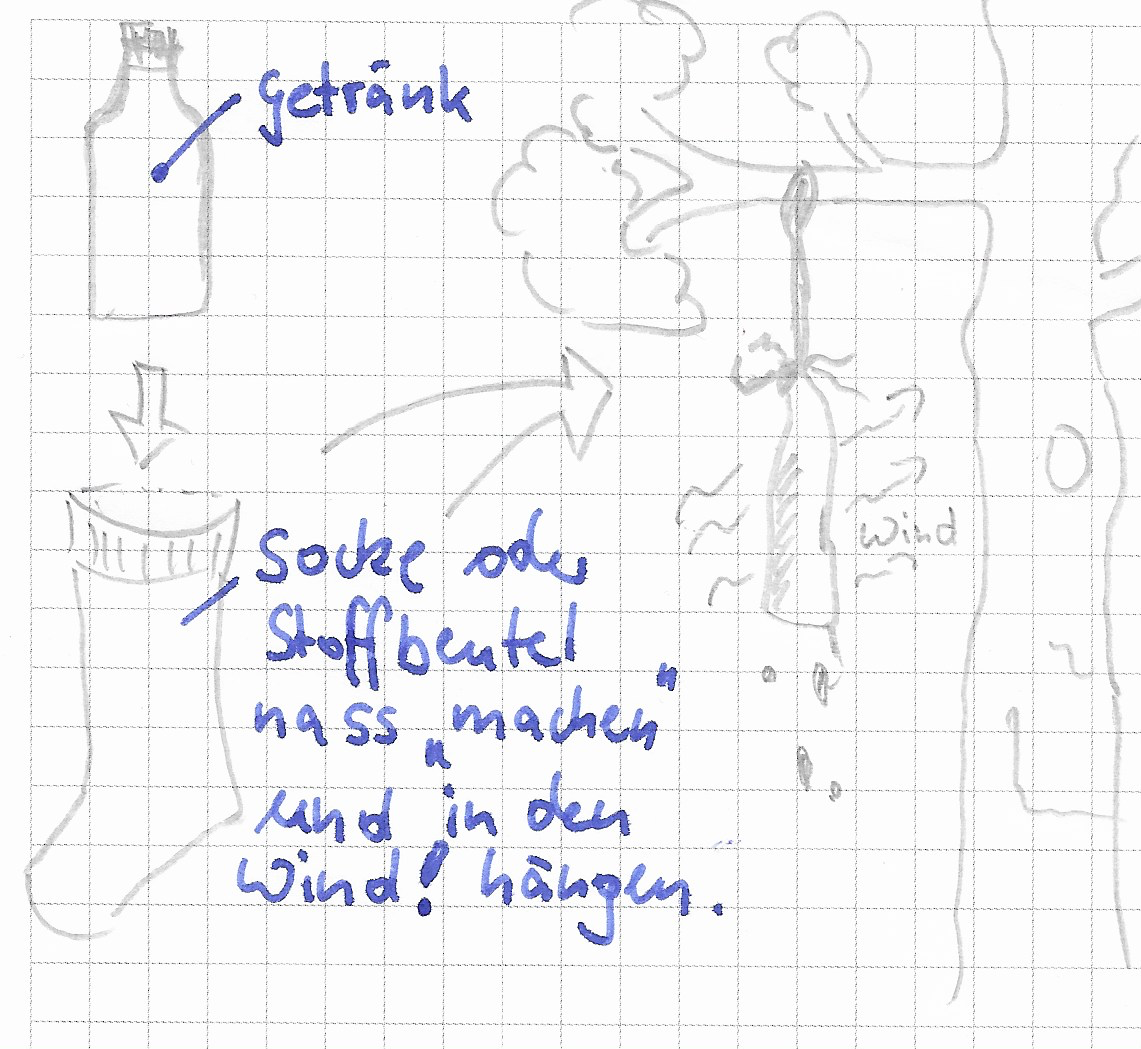 Getränk
Socke oder
Stoffbeutel
nass „machen"
und in den
Wind! hängen.
Wind